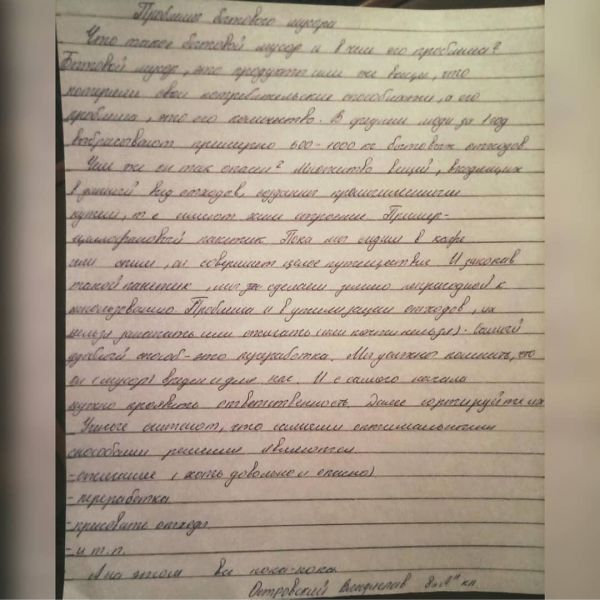 Проблема бытового мусора
Что такое бытовой мусор и в чем его проблема?
Бытовой мусор, это продукты или же вещи, что
потеряли свои потребительские способности, а его
проблема, это его количество. В среднем люди за 1 год
выбрасывают примерно 500-1000 кг бытовых отходов
Чем же он так опасен? Множество вещей, входящих
в данный вид отходов, созданы промышленным
путем, т.е имеют хим строение. Пример-
целлофановый пакетик. Пока мы сидим в кафе
или спим, он совершает целое путешествие. И закопав
такой пакетик, мы же сделаем землю непригодной к
использованию. Проблема и в утилизации отходов, их
нельзя закопать или сжигать (или почти нельзя). Самый
удобный способ-это переработка. Мы должны помнить, что
он (мусор) вреден и для нас. И с самого начала
нужно проявить ответственность. Далее сортируйте их
Ученые считают, что самыми оптимальными
способами решения являются
-сжигание (хоть довольно и опасно)
-переработка
отходы
-и т.п.
А на этом все пока-пока
Островский 8"А" кл